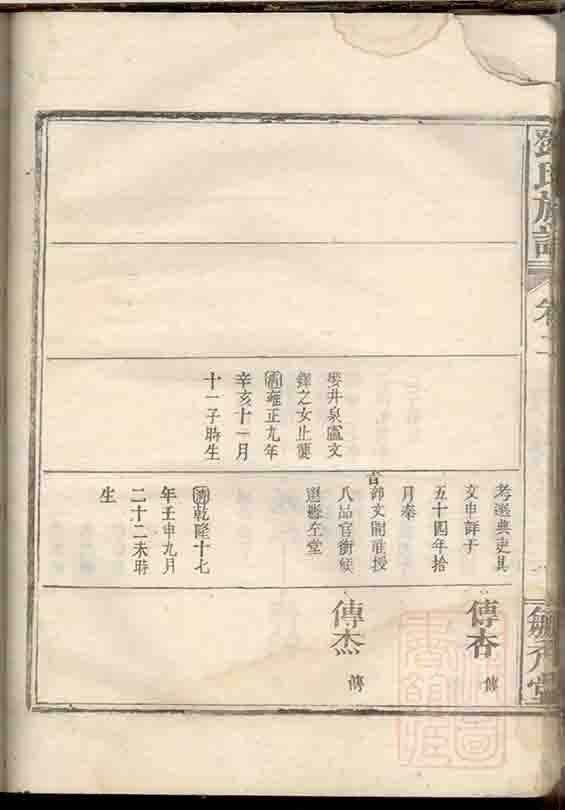 鄧氏族譜
卷二
娶井泉盧文
鐸之女止襲
清雍正九年
辛亥十一月
十一子時生
考選典吏具
文申詳于
五十四年拾
月奉
旨師文閣准授
八品官銜候
選縣左堂
清乾隆十七
年壬申九月
二十二未時
生
傳杏 傳
傳杰 傳